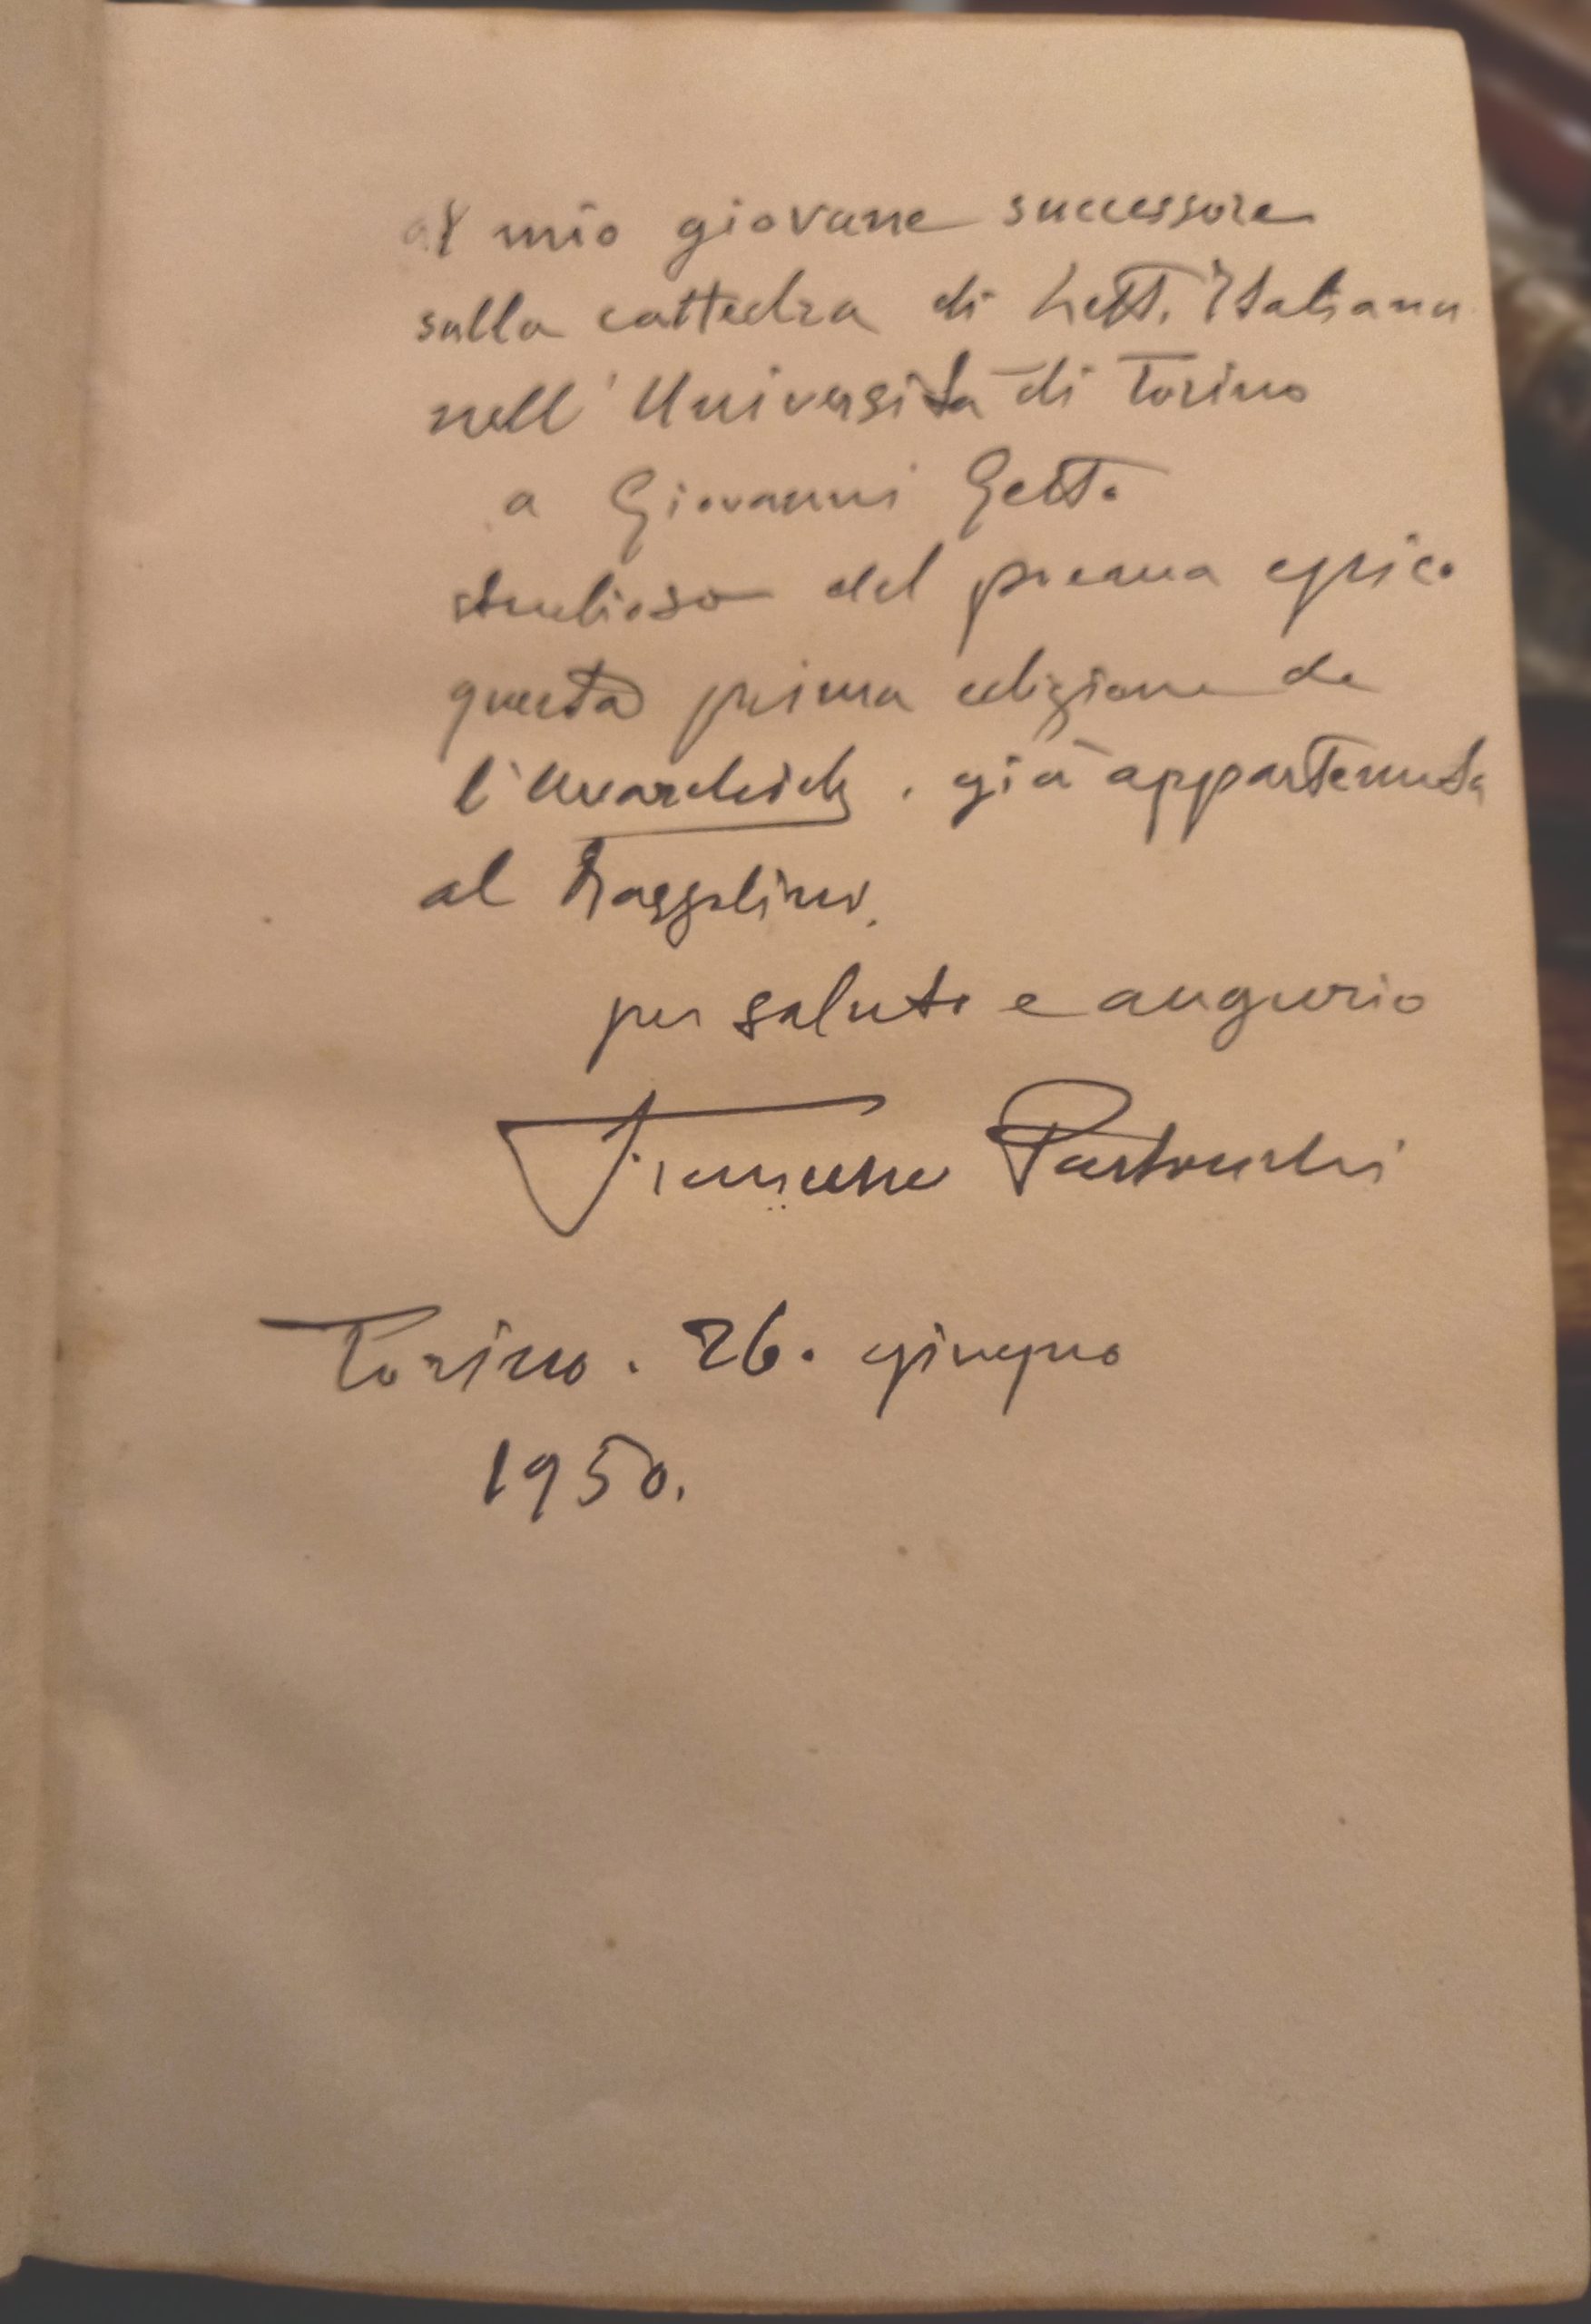 al mio giovane successore
sulla cattedra di Lett. Italiana
nell'Università di Torino
a Giovanni Getto
studioso del poema epico
questa prima edizione de
l'Avarchide. già appartenuta
al
per saluto e augurio
Francesco Pastonchi
Torino. 26. giugno
1950.